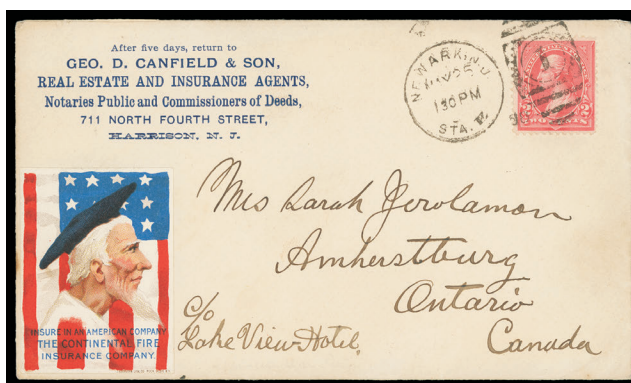 After five days, return to
GEO. D. CANFIELD & SON,
REAL ESTATE AND INSURANCE AGENTS,
Notaries Public and Commissioners of Deeds,
711 NORTH FOURTH STREET,
HARRISON, N. J.
NEWARK, N.J.
130 PM
STA.
Mrs Sarah Jerolamon
Amherstburg
Ontario
Canada
c/o
Lake View Hotel,
INSURE IN AN AMERICAN COMPANY
THE CONTINENTAL FIRE
INSURANCE COMPANY.